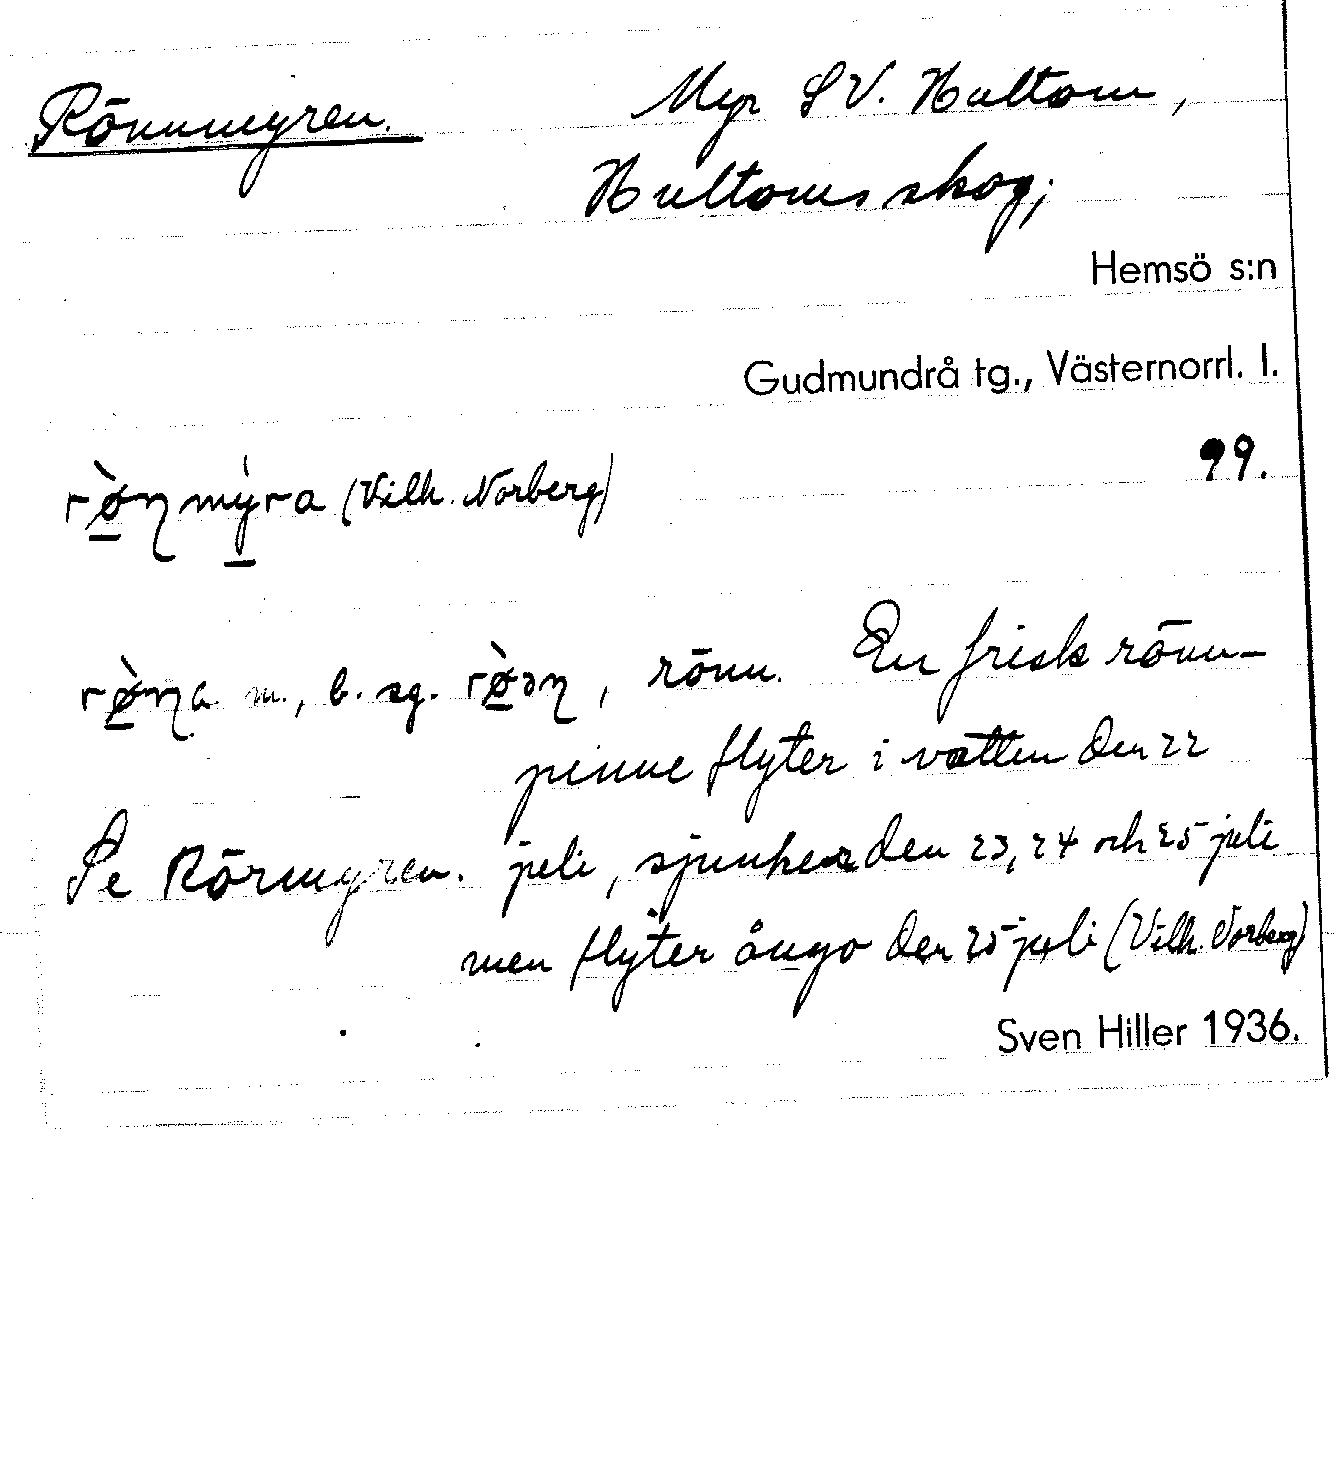 Rönnmyren. Myr SV. Hultom,
Hultoms skog;
Hemsö s:n
Gudmundrå tg., Västernorrl. l.
99.
(Vilh. Norberg)
m., b. sg. , rönn. En frisk rönn-
pinne flyter i vatten den 22
Se Rörmyren. juli, sjunker den 23, 24 och 25 juli
men flyter ånyo den 25 juli (Vilh. Norberg)
Sven Hiller 1936.